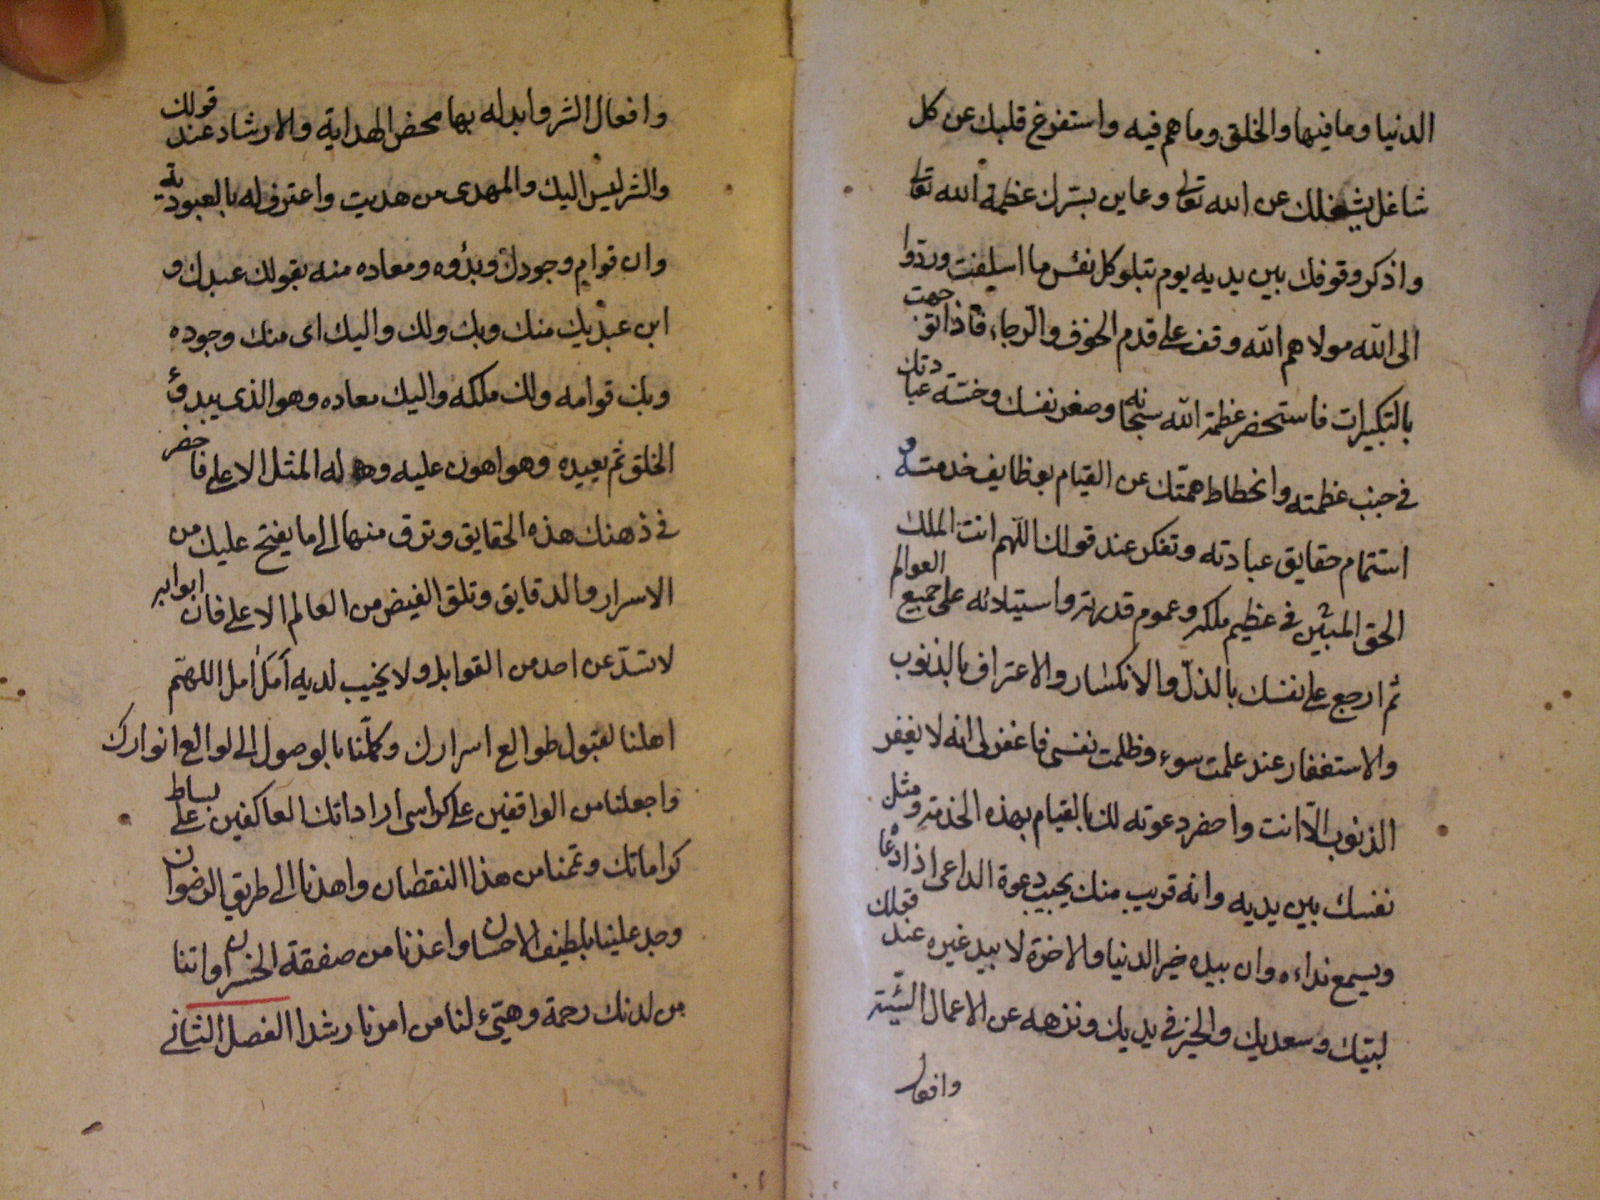 الدنيا وما فيها والخلق وما هم فيه واستفرغ قلبك عن كل
شاغل يشغلك عن الله تعالى وعاين بسرك عظمة الله تعالى
واذكر وقوفك بين يديه يوم تبلو كل نفس ما اسلفت وردوا
الى الله مولاهم الله وقف على قدم الخوف والرجاء فاذا توجهت
بالتكبيرات فاستحضر عظمة الله سبحانه وصغر نفسك وخسة عبادتك
في جنب عظمته وانحطاط همتك عن القيام بوظايف خدمته و
استتمام حقايق عبادته وتفكر عند قولك اللهم انت الملك
الحق المبين في عظيم ملكه وعموم قدرته واستيلائه على جميع العوالم
ثم ارجع على نفسك بالذل والانكسار والاعتراف بالذنوب
والاستغفار عند علمت سوء وظلمت نفسي فاغفر لي انه لا يغفر
الذنوب الا انت واحضر دعوته لك بالقيام بهذه الخدمة ومثل
نفسك بين يديه وانه قريب منك يجيب دعوة الداعي اذا دعا
ويسمع نداءه وان بيده خير الدنيا والاخرة لا بيد غيره عند قولك
لبيك وسعديك والخير في يديك ونزهه عن الاعمال السيئة
وافعال
وافعال الشر وابدله بها محض الهداية والارشاد عند قولك
والشر ليس اليك والمهدى من هديت واعترف له بالعبودية
وان قوام وجودك وبدؤه ومعاده منه بقولك عبدك و
ابن عبديك منك وبك ولك واليك اى منك وجوده
وبك قوامه ولك ملكه واليك معاده وهو الذى يبدؤ
الخلق ثم يعيده وهو اهون عليه وله المثل الاعلى فاحضر
في ذهنك هذه الحقايق وترق منها الى ما يفتح عليك من
الاسرار والدقايق وتلق الفيض من العالم الاعلى فان ابوابه
لا تسد عن احد من القوابل ولا يخيب لديه امل آمل اللهم
اهلنا لقبول طوالع اسرارك وكملنا بالوصول الى لوامع انوارك
واجعلنا من الواقفين على كراسى اراداتك العاكفين على بساط
كراماتك وتمنا من هذا النقصان واهدنا الى طريق الرضوان
وجد علينا بلطيف الاحسان واعذنا من صفقة الخسران واتنا
من لدنك رحمة وهيئ لنا من امرنا رشدا الفصل الثاني